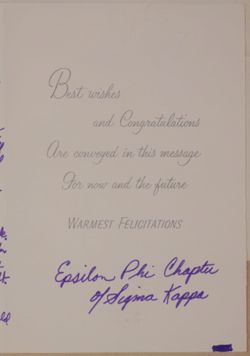 Best wishes
and Congratulations
Are conveyed in this message
For now and the future
WARMEST FELICITATIONS
Epsilon Phi Chapter
of Sigma Kappa